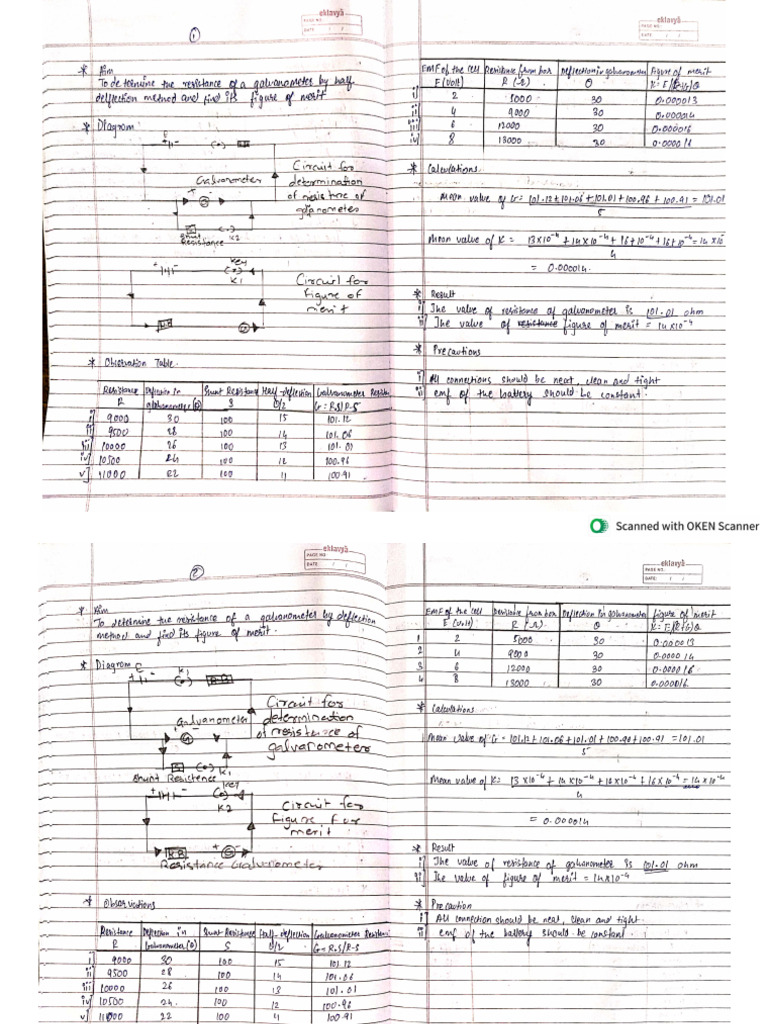 eklavyā
PAGE NO.
DATE: / /
1
* Aim
To determine the resistance of a galvanometer by half
deflection method and find its figure of merit
* Diagram
Circuit for
determination
of resistance of
Galvanometer
Shunt
Resistance K2
Key
K1
Circuit for
figure of
merit
* Observation Table.
Resistance Deflection in Shunt Resistance Half-deflection Galvanometer Resisten
R galvanometer (θ) S θ/2 G = R.S/R-S
i] 9000 30 100 15 101.12
ii] 9500 28 100 14 101.06
iii] 10000 26 100 13 101.01
iv] 10500 24 100 12 100.96
v] 11000 22 100 11 100.91
eklavyā
PAGE NO.
DATE: / /
EMF of the cell Resistance from box Deflection in galvanometer Figure of merit
E (Volt) R (Ω) θ K = E/(R+G)θ
i] 2 5000 30 0.000013
ii] 4 9000 30 0.000014
iii] 6 12000 30 0.000016
iv] 8 13000 30 0.000016
* Calculations.
Mean value of G = 101.12+101.06+101.01+100.96+100.91 = 101.01
5
Mean value of K = 13×10⁻⁴ + 14×10⁻⁴ + 16+10⁻⁴ +16+10⁻⁴ = 14×10⁻
4
= 0.000014.
* Result
i] The value of resistance of galvanometer is 101.01 ohm
ii] The value of resistance figure of merit = 14×10⁻⁴
* Precautions
i] All connections should be neat, clean and tight
ii] emf of the battery should be constant.
Scanned with OKEN Scanner
eklavyā
PAGE NO.
DATE: / /
2
* Aim
To determine the resistance of a galvanometer by deflection
method and find its figure of merit.
* Diagram
K1
Circuit for
determination
of resistance of
galvanometers
Galvanometer
Shunt Resistence K1
Key
K2
Circuit for
Figure for
merit
Resistance Galvanometer
* Observations
Resistance Deflection in Shunt Resistance Half-deflection Galvanometer Resisten
R Galvanometer (θ) S θ/2 G = R.S/R-S
i] 9000 30 100 15 101.12
ii] 9500 28 100 14 101.06
iii] 10000 26 100 13 101.01
iv] 10500 24 100 12 100.96
v] 11000 22 100 11 100.91
eklavyā
PAGE NO.
DATE: / /
EMF of the cell Resistance from box Deflection in galvanometer figure of merit
E (Volt) R (Ω) θ K = E/(R+G)θ
1 2 5000 30 0.000013
2 4 9000 30 0.000014
3 6 12000 30 0.000016
4 8 13000 30 0.000016.
* Calculations
Mean value of G = 101.12+101.06+101.01+100.96+100.91 = 101.01
5
Mean value of K = 13×10⁻⁴ + 14×10⁻⁴ + 16×10⁻⁴ + 16×10⁻⁴ = 14×10⁻⁴
4
= 0.000014
* Result
i] The value of resistance of galvanometer is 101.01 ohm
ii] The value of figure of merit = 14×10⁻⁴
* Precaution
i] All connection should be neat, clean and tight.
ii] emf of the battery should be constant.